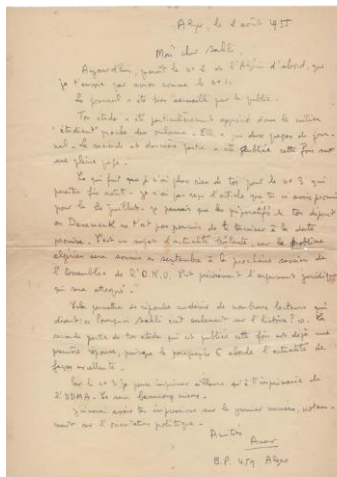 Alger, le 2 août 1955
Mon cher Sahli,
Aujourd'hui, paraît le n° 2 de l'Algérie d'abord, que
je t'envoie par avion comme le n° 1.
Le journal a été bien accueilli par le public.
Ton étude a été particulièrement apprécié dans les milieux
étudiants proches des oulamas. Elle a pris deux pages de jour-
nal. La seconde et dernière partie a été publiée cette fois sur
une pleine page.
Ce qui fait que je n'ai plus rien de toi pour le n° 3 qui
paraîtra fin août. Je n'ai pas reçu l'article que tu m'avais promis
pour le 20 juillet. Je pensais que les préparatifs de ton départ
au Danemark ne t'ont pas permis de le terminer à la date
promise. C'est un sujet d'actualité brûlante, car le problème
algérien sera soumis en septembre à la prochaine session de
l'Assemblée de l'O.N.U. C'est précisément l'argument juridique
qui sera attaqué.
Cela permettra de répondre au désir de nombreux lecteurs qui
disent : Pourquoi Sahli écrit seulement sur l'histoire ? La
seconde partie de ton étude qui est publiée cette fois est déjà une
première réponse, puisque le paragraphe 6 aborde l'actualité de
façon excellente.
Car le n° 3 je pense imprimer ailleurs qu'à l'imprimerie de
l'UDMA. Ce sera beaucoup mieux.
J'aimerai avoir tes impressions sur le premier numéro, notam-
ment sur l'orientation politique.
Amitiés
B.P. 459 Alger